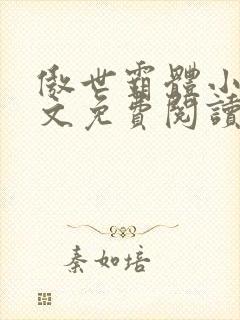 傲世霸體小
文免費閱讀
秦如培